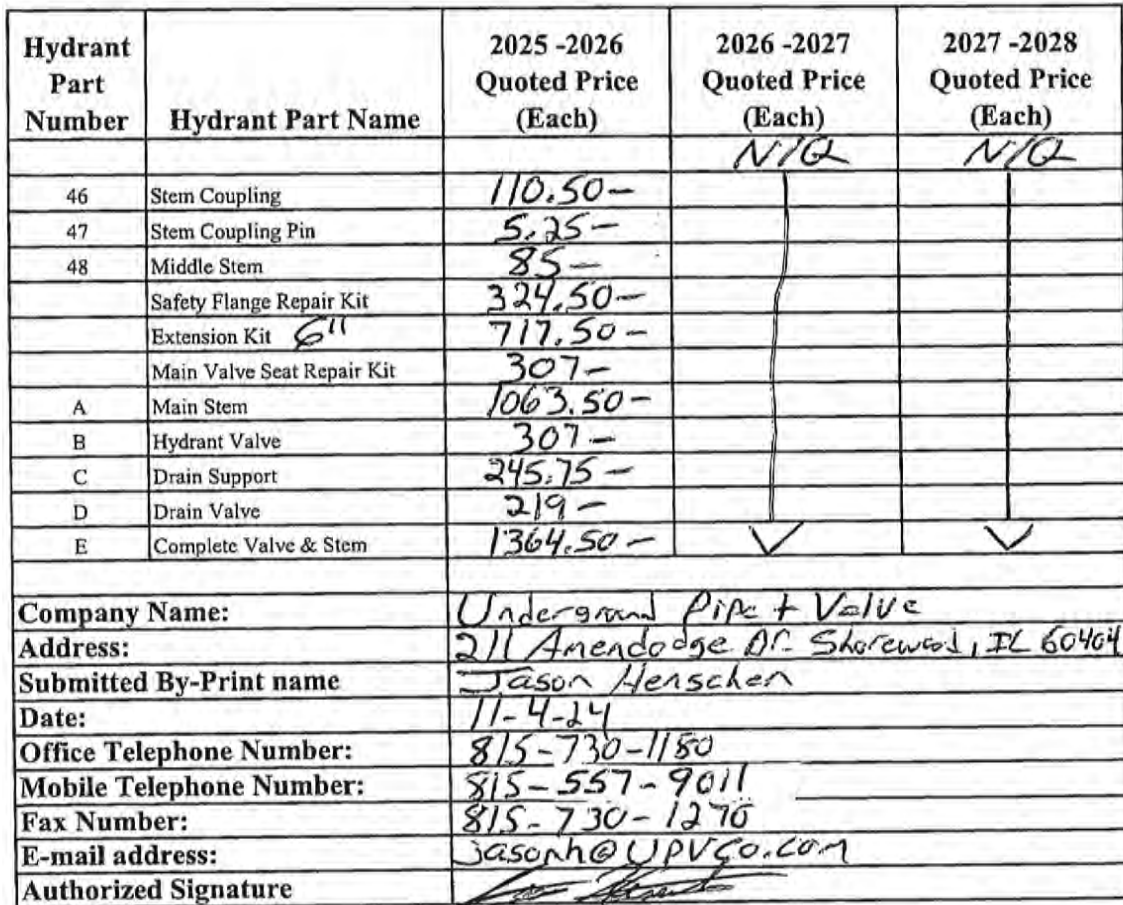 Hydrant Part Number | Hydrant Part Name | 2025 -2026 Quoted Price (Each) | 2026 -2027 Quoted Price (Each) | 2027 -2028 Quoted Price (Each)
N/Q N/Q
46 Stem Coupling 110.50-
47 Stem Coupling Pin 5.25-
48 Middle Stem 85-
Safety Flange Repair Kit 324.50-
Extension Kit 6" 717.50-
Main Valve Seat Repair Kit 307-
A Main Stem 1063.50-
B Hydrant Valve 307-
C Drain Support 245.75-
D Drain Valve 219-
E Complete Valve & Stem 1364.50-
Company Name: Underground Pipe + Valve
Address: 211 Amendodge Dr. Shorewood, IL 60404
Submitted By-Print name Jason Henschen
Date: 11-4-24
Office Telephone Number: 815-730-1180
Mobile Telephone Number: 815-557-9011
Fax Number: 815-730-1270
E-mail address: jasonh@UPVCo.com
Authorized Signature